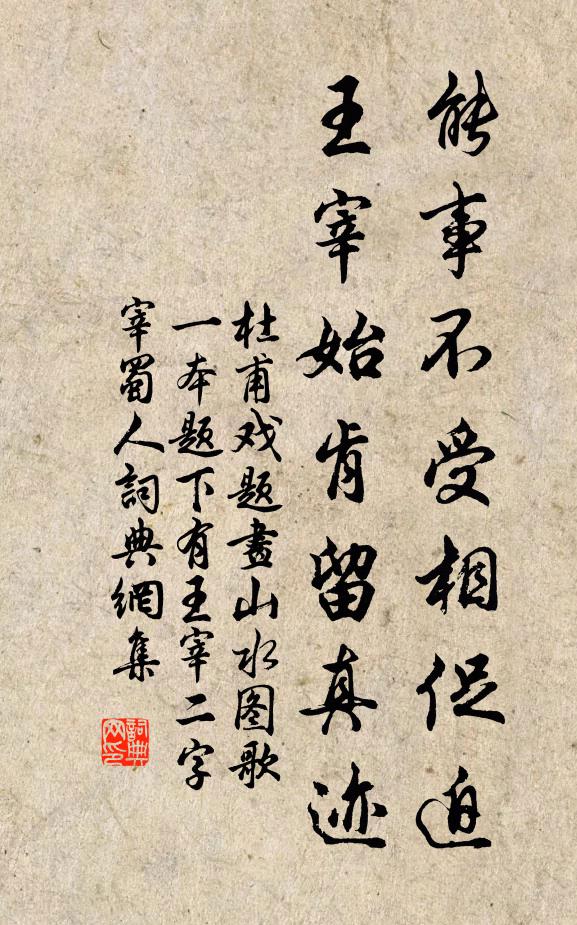 能事不受相促迫
王宰始肯留真迹
杜甫戏题畫山水图歌
一本题下有王宰二字
宰蜀人詞典網集
詞典
网印